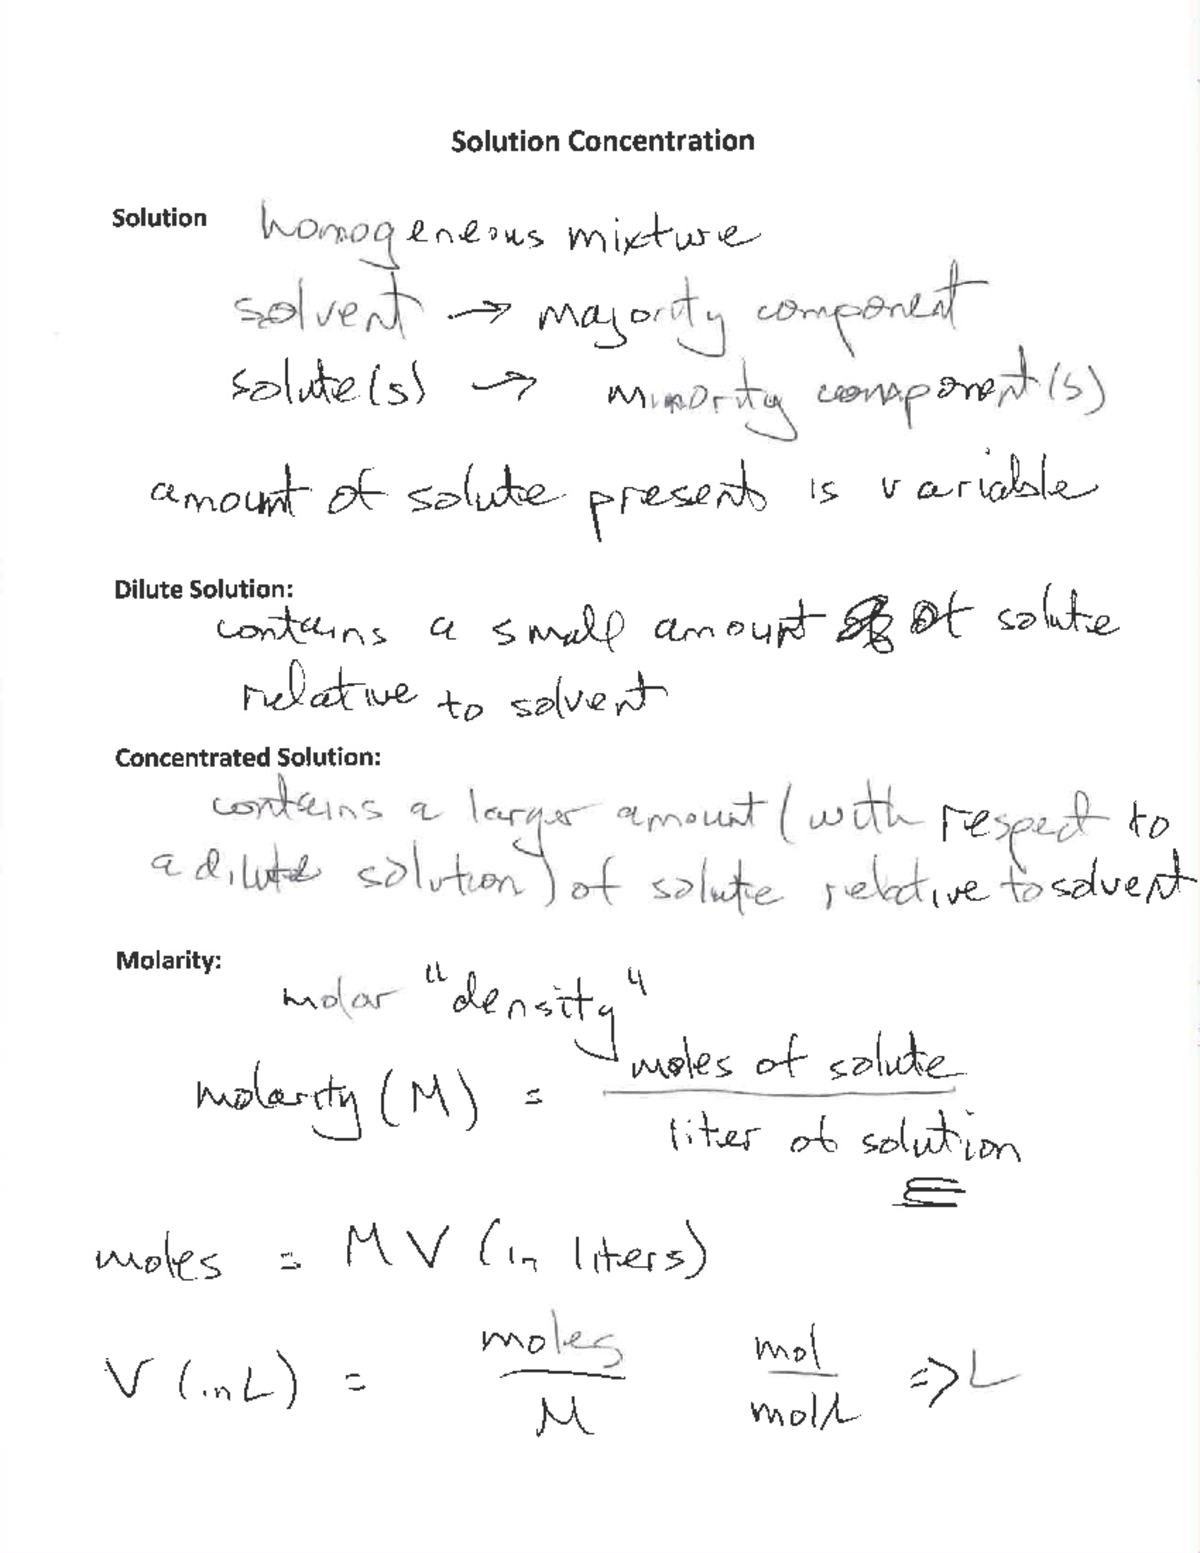 Solution Concentration
Solution homogeneous mixture
solvent → majority component
solute(s) → minority component(s)
amount of solute present is variable
Dilute Solution:
contains a small amount of solute
relative to solvent
Concentrated Solution:
contains a larger amount (with respect to
a dilute solution) of solute relative to solvent
Molarity:
molar "density"
molarity (M) = moles of solute
liter of solution
moles = MV (in liters)
V (in L) = moles / M mol / mol/L => L